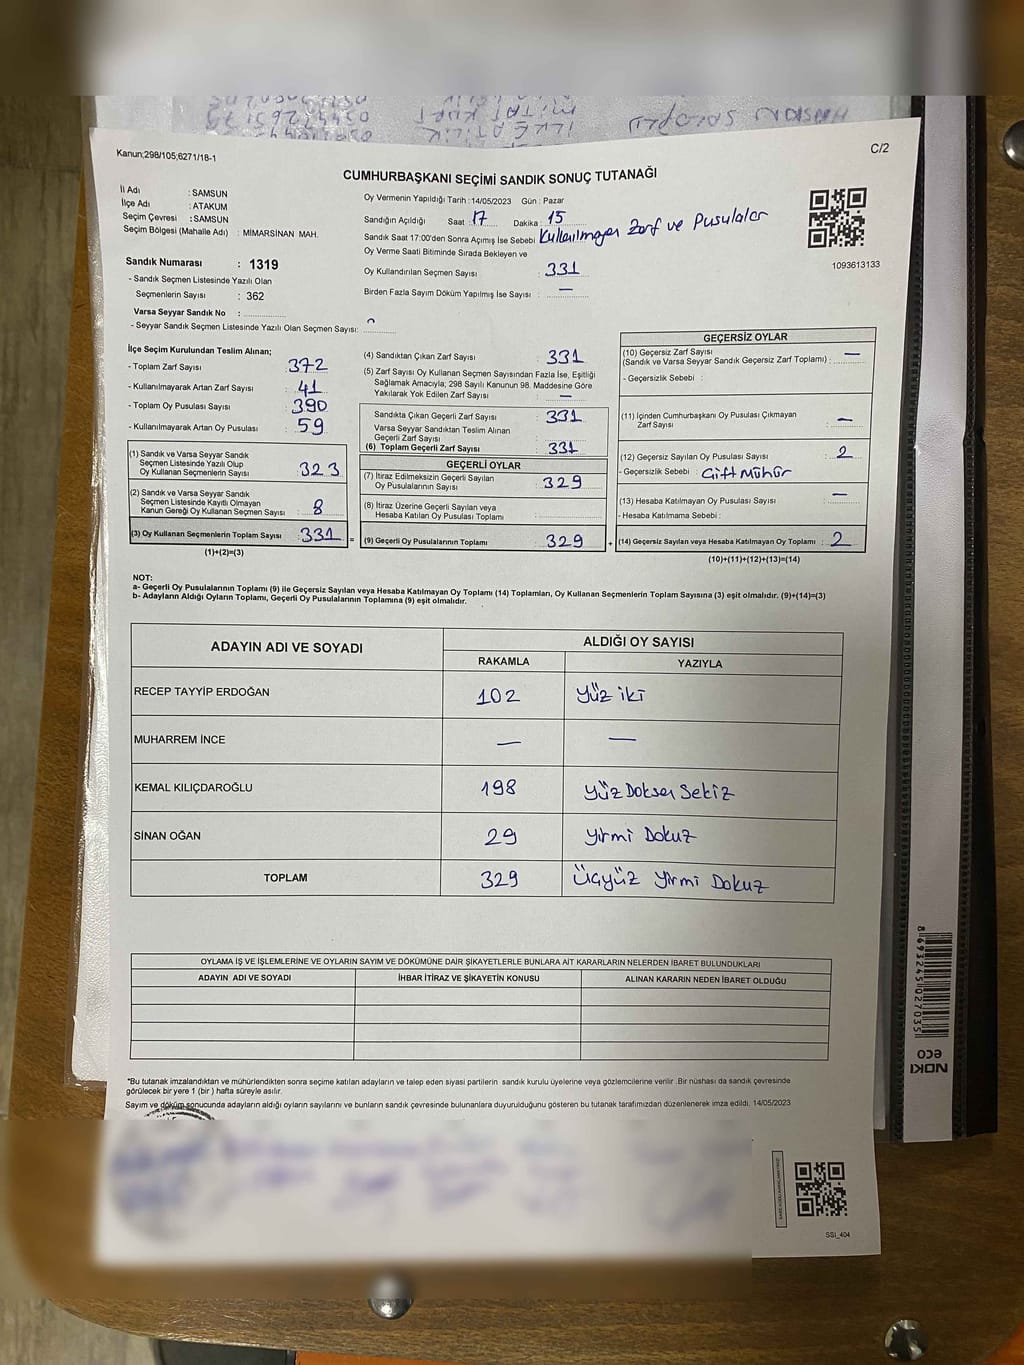 HASTAN SARIOĞLU
Kanun;298/105;6271/18-1
C/2
CUMHURBAŞKANI SEÇİMİ SANDIK SONUÇ TUTANAĞI
İl Adı : SAMSUN
İlçe Adı : ATAKUM
Seçim Çevresi : SAMSUN
Seçim Bölgesi (Mahalle Adı) : MİMARSİNAN MAH.
Oy Vermenin Yapıldığı Tarih :14/05/2023 Gün : Pazar
Sandığın Açıldığı Saat : 17 Dakika : 15
Sandık Saat 17:00'den Sonra Açımış İse Sebebi Kullanılmayan Zarf ve Pusulalar
Oy Verme Saati Bitiminde Sırada Bekleyen ve
Oy Kullandırılan Seçmen Sayısı : 331
Birden Fazla Sayım Döküm Yapılmış İse Sayısı : —
1093613133
Sandık Numarası : 1319
- Sandık Seçmen Listesinde Yazılı Olan
Seçmenlerin Sayısı : 362
Varsa Seyyar Sandık No :
- Seyyar Sandık Seçmen Listesinde Yazılı Olan Seçmen Sayısı:
İlçe Seçim Kurulundan Teslim Alınan;
- Toplam Zarf Sayısı : 372
- Kullanılmayarak Artan Zarf Sayısı : 41
- Toplam Oy Pusulası Sayısı : 390
- Kullanılmayarak Artan Oy Pusulası : 59
(1) Sandık ve Varsa Seyyar Sandık
Seçmen Listesinde Yazılı Olup
Oy Kullanan Seçmenlerin Sayısı : 323
(2) Sandık ve Varsa Seyyar Sandık
Seçmen Listesinde Kayıtlı Olmayan
Kanun Gereği Oy Kullanan Seçmen Sayısı : 8
(3) Oy Kullanan Seçmenlerin Toplam Sayısı : 331 =
(1)+(2)=(3)
(4) Sandıktan Çıkan Zarf Sayısı : 331
(5) Zarf Sayısı Oy Kullanan Seçmen Sayısından Fazla İse, Eşitliği
Sağlamak Amacıyla; 298 Sayılı Kanunun 98. Maddesine Göre
Yakılarak Yok Edilen Zarf Sayısı : —
Sandıkta Çıkan Geçerli Zarf Sayısı : 331
Varsa Seyyar Sandıktan Teslim Alınan
Geçerli Zarf Sayısı :
(6) Toplam Geçerli Zarf Sayısı : 331
GEÇERLİ OYLAR
(7) İtiraz Edilmeksizin Geçerli Sayılan
Oy Pusulalarının Sayısı : 329
(8) İtiraz Üzerine Geçerli Sayılan veya
Hesaba Katılan Oy Pusulası Toplamı :
(9) Geçerli Oy Pusulalarının Toplamı : 329 +
GEÇERSİZ OYLAR
(10) Geçersiz Zarf Sayısı
(Sandık ve Varsa Seyyar Sandık Geçersiz Zarf Toplamı) : —
- Geçersizlik Sebebi :
(11) İçinden Cumhurbaşkanı Oy Pusulası Çıkmayan
Zarf Sayısı : —
(12) Geçersiz Sayılan Oy Pusulası Sayısı : 2
- Geçersizlik Sebebi : Çift Mühür
(13) Hesaba Katılmayan Oy Pusulası Sayısı : —
- Hesaba Katılmama Sebebi :
(14) Geçersiz Sayılan veya Hesaba Katılmayan Oy Toplamı : 2
(10)+(11)+(12)+(13)=(14)
NOT:
a- Geçerli Oy Pusulalarının Toplamı (9) ile Geçersiz Sayılan veya Hesaba Katılmayan Oy Toplamı (14) Toplamları, Oy Kullanan Seçmenlerin Toplam Sayısına (3) eşit olmalıdır. (9)+(14)=(3)
b- Adayların Aldığı Oyların Toplamı, Geçerli Oy Pusulalarının Toplamına (9) eşit olmalıdır.
ADAYIN ADI VE SOYADI ALDIĞI OY SAYISI
RAKAMLA YAZIYLA
RECEP TAYYİP ERDOĞAN 102 Yüz iki
MUHARREM İNCE — —
KEMAL KILIÇDAROĞLU 198 Yüz Doksen Sekiz
SİNAN OĞAN 29 Yirmi Dokuz
TOPLAM 329 Üçyüz Yirmi Dokuz
OYLAMA İŞ VE İŞLEMLERİNE VE OYLARIN SAYIM VE DÖKÜMÜNE DAİR ŞİKAYETLERLE BUNLARA AİT KARARLARIN NELERDEN İBARET BULUNDUKLARI
ADAYIN ADI VE SOYADI İHBAR İTİRAZ VE ŞİKAYETİN KONUSU ALINAN KARARIN NEDEN İBARET OLDUĞU
*Bu tutanak imzalandıktan ve mühürlendikten sonra seçime katılan adayların ve talep eden siyasi partilerin sandık kurulu üyelerine veya gözlemcilerine verilir .Bir nüshası da sandık çevresinde
görülecek bir yere 1 (bir ) hafta süreyle asılır.
Sayım ve döküm sonucunda adayların aldığı oyların sayılarını ve bunların sandık çevresinde bulunanlara duyurulduğunu gösteren bu tutanak tarafımızdan düzenlenerek imza edildi. 14/05/2023
SSI_404
8693245027035
NOKI
eco